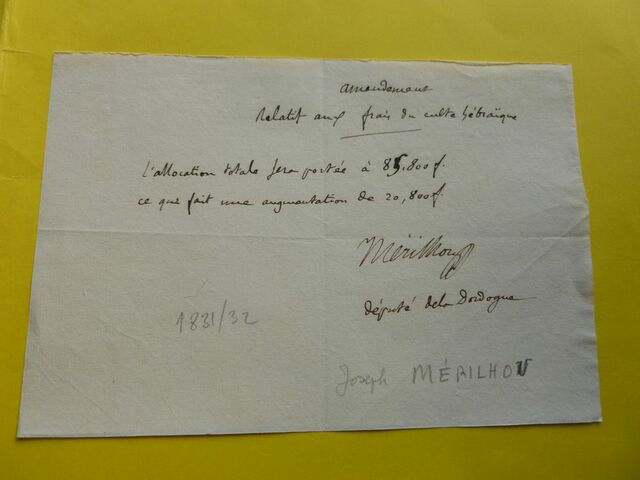 amendement
Relatif aux frais du culte hébraïque
L'allocation totale sera portée à 85.800 f.
ce qui fait une augmentation de 20,800 f.
Mérilhou
député de la Dordogne
1831/32
Joseph MÉRILHOU